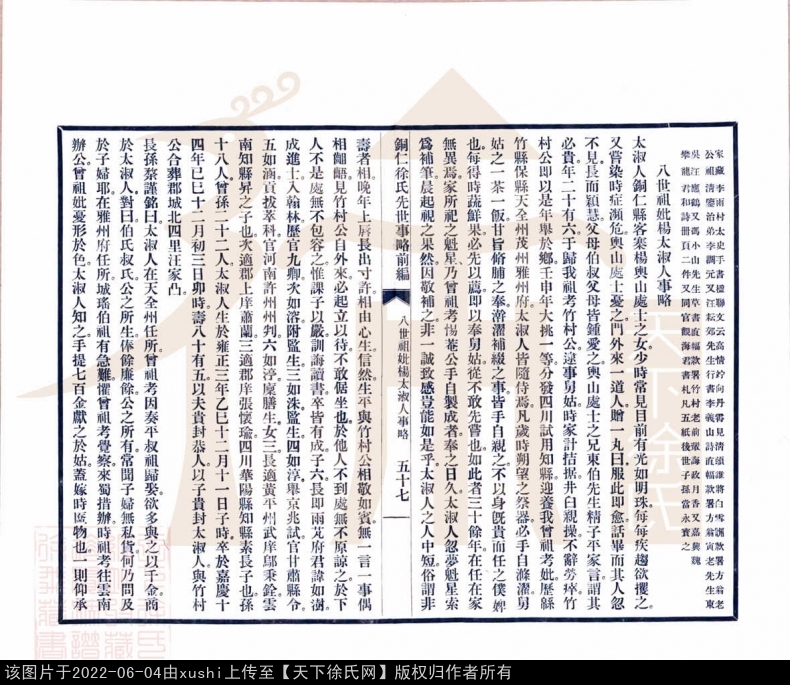 家藏李雨村太史手書楹聯文云高情約向丹霄見清頌誰將白雪調款署方翁老
公祖清鑒治弟李調元又汪耘郊先生行書李義山詩直幅款署方翁寅老先生東
吳汪應鶴又馮小山先生草書直幅款署竹村老前輩海政月香又嘉興魏
攀龍君和詩冊頁二件又同官觀海君書札凡五紙後世子孫當永寶之
八世祖妣楊太淑人事略
太淑人銅仁縣客寨楊輿山處士之女少時常見目前有光如明珠每每疾趨欲攫之
又嘗染時症瀕危輿山處士憂之門外來一道人贈一丸曰服此即愈話畢而其人忽
不見長而穎慧父母伯叔父母皆鍾愛之輿山處士之兄東伯先生精子平家言謂其
必貴年二十有六于歸我祖考竹村公逮事舅姑時家計拮据井臼親操不辭勞瘁竹
村公即以是年舉於鄉壬申年大挑一等分發四川試用知縣迎養我曾祖考妣歷緜
竹縣保縣天全州茂州雅州府太淑人皆隨侍焉凡歲時朔望之祭器必手自滌濯舅
姑之一茶一飯甘旨脩脯之奉幹澣濯補綴之事皆手自親之不以身既貴而任之僕婢
也每得時蔬鮮果必先以薦即以奉舅姑從不敢先嘗也如此者三十餘年在任在家
無異焉家所祀之魁星乃曾祖考惕菴公手自製成者奉之日久太淑人忽夢魁星索
爲補筆晨起視之果然因敬補之非一誠致感豈能如是乎太淑人之人中短俗謂非
銅仁徐氏先世事略前編
八世祖妣楊太淑人事略
五十七
壽者相晚年上唇長出寸許相由心生信然生平與竹村公相敬如賓無一言一事偶
相齟齬見竹村公自外來必起立以待不敢倨坐也於他人不到處無不原諒之於下
人不是處無不包容之惟課子以嚴訓誨讀書卒皆有成子六長即雨芃府君諱如澍
成進士入翰林歷官九卿次如溶附監生三如洙監生四如淳舉京兆試官甘肅縣令
五如涵貢拔萃科官河南許州州判六如渟廩膳生女三長適黃平州武庠鄔秉銓雲
南知縣昇之子也次適郡上庠蕭蘭三適郡庠張懷瑜四川華陽縣知縣素長子也孫
十八人曾孫二十二人太淑人生於雍正三年乙巳十二月十一日子時卒於嘉慶十
四年己巳十二月初三日卯時壽八十有五以夫貴封恭人以子貴封太淑人與竹村
公合葬郡城北四里汪家凸
長孫棻謹銘曰太淑人在天全州任所曾祖考因奏平叔祖歸娶欲多與之以千金商
於太淑人對曰伯氏叔氏公之所生俸餘廉餘公之所有常聞子婦無私貨何乃問及
於子婦耶在雅州府任所城瑤伯祖有急難懼曾祖考覺察來蜀措辦時祖考往雲南
辦公曾祖妣憂形於色太淑人知之手提七百金獻之於姑蓋嫁時匳物也一則仰承
天下徐氏
该图片于2022-06-04由xushi上传至【天下徐氏网】版权归作者所有